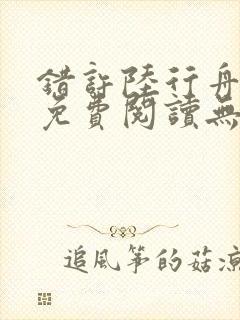 錯許陸行舟
免費閱讀無
追風箏的菇涼